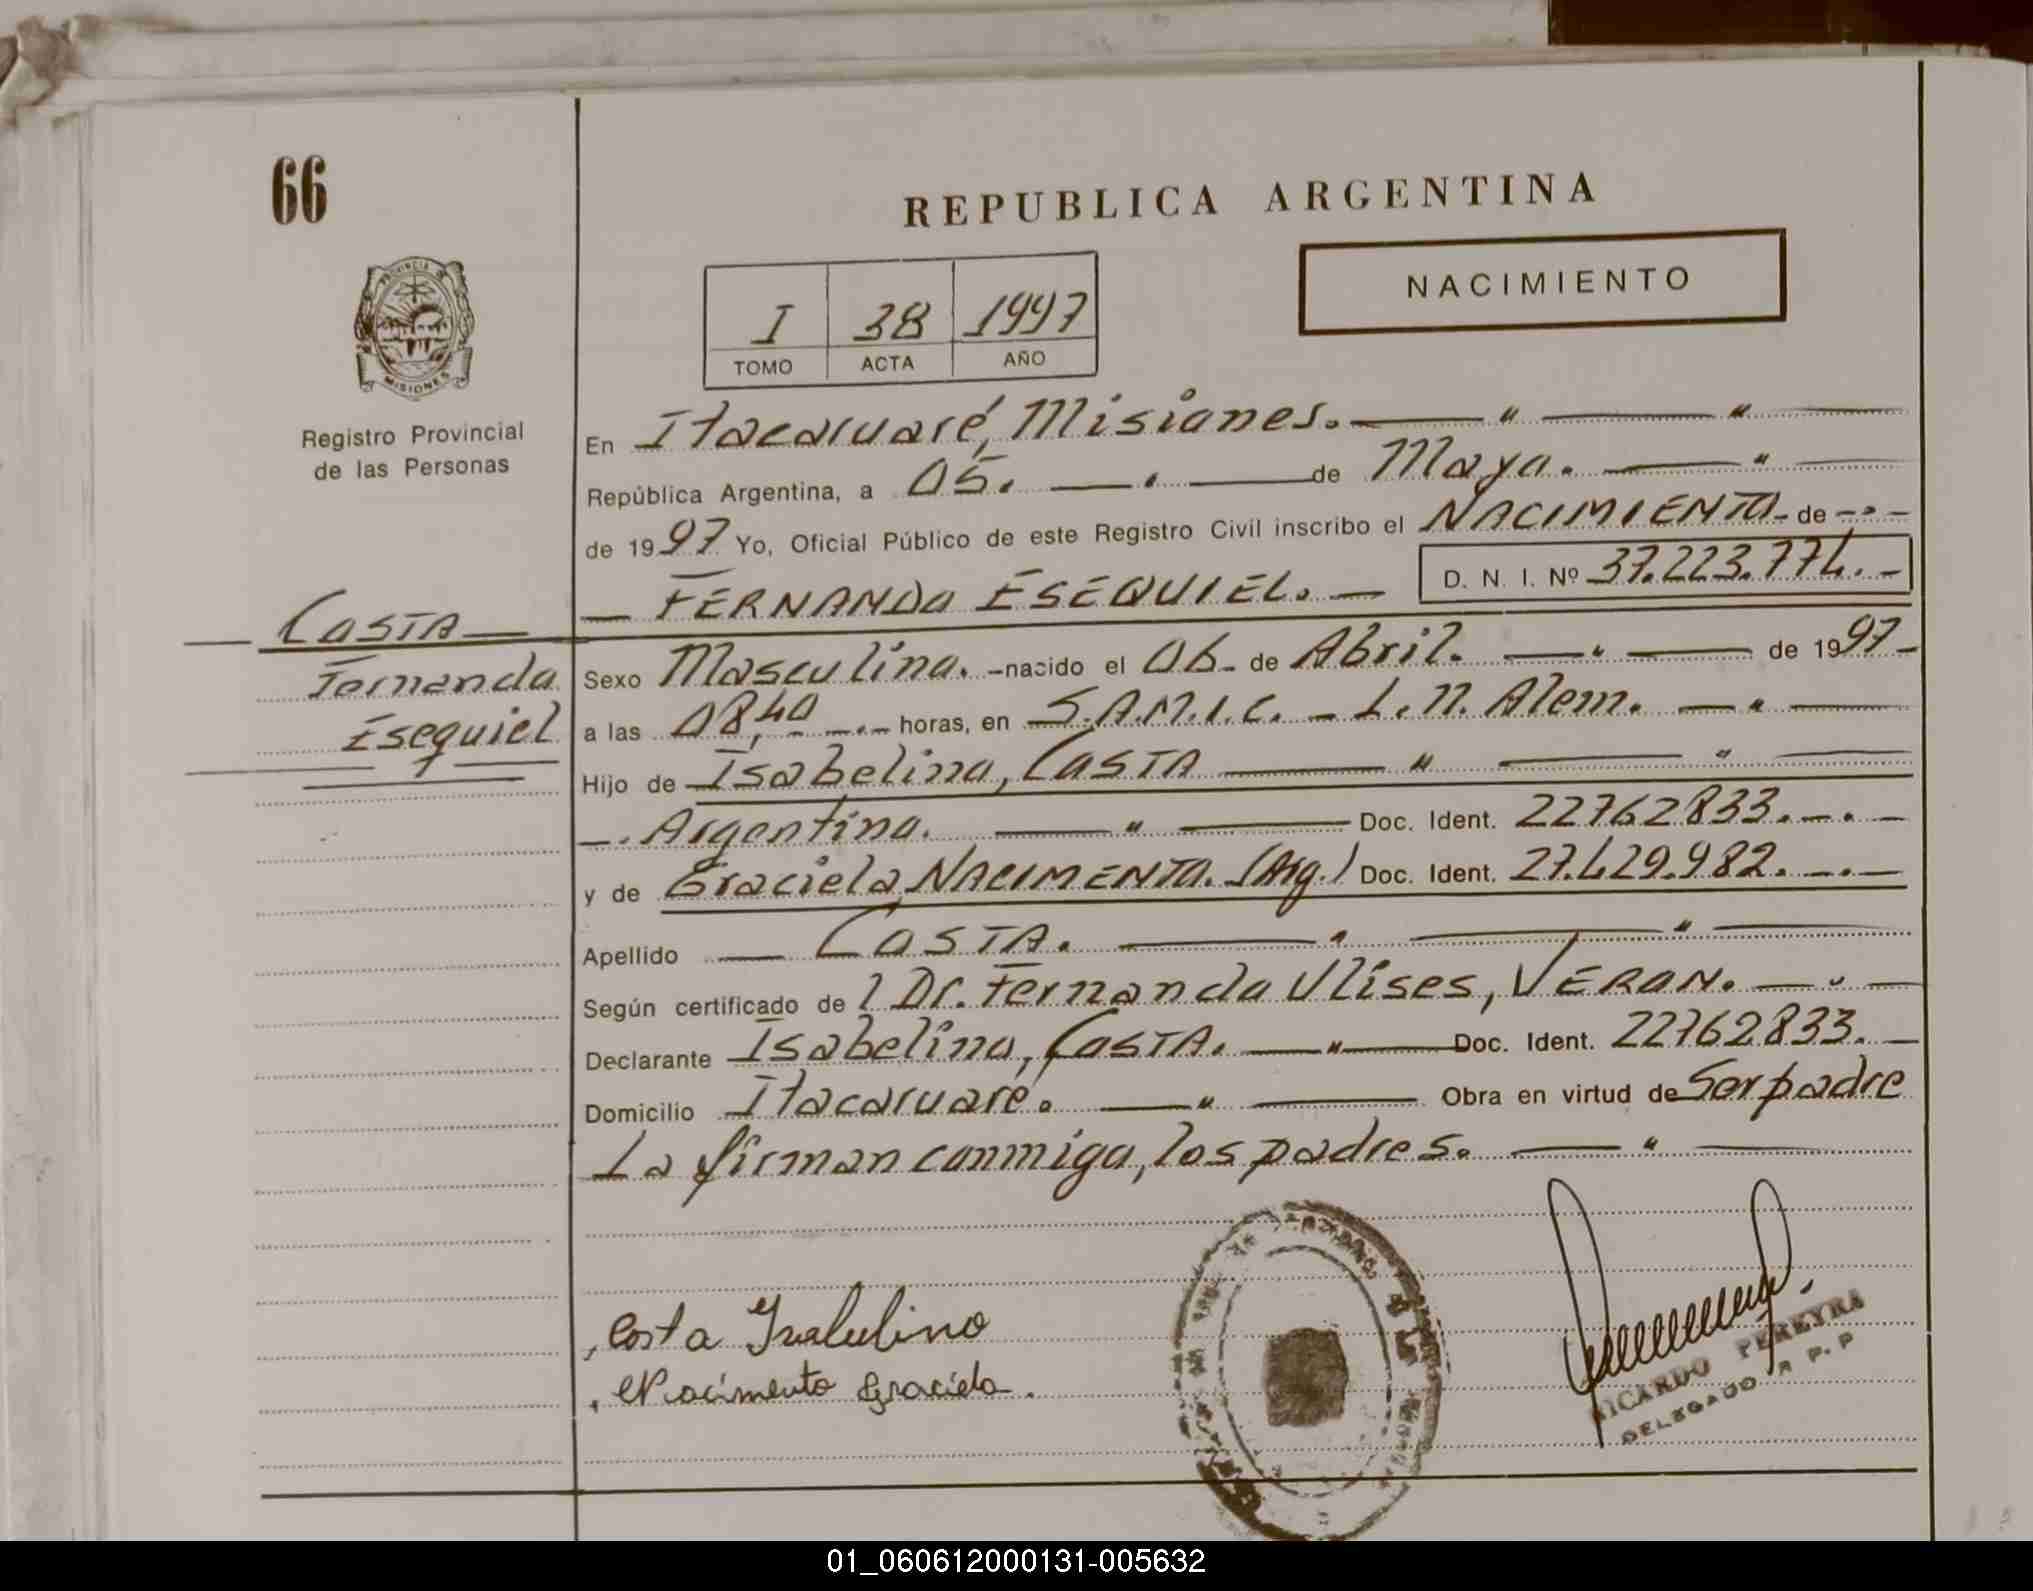 66
REPUBLICA ARGENTINA
NACIMIENTO
I 38 1997
TOMO ACTA AÑO
PROVINCIA DE
MISIONES
Registro Provincial
de las Personas
En Itacaruaré, Misiones.
República Argentina, a 05. de Mayo.
de 1997 Yo, Oficial Público de este Registro Civil inscribo el NACIMIENTO de
FERNANDO ESEQUIEL. D. N. I. Nº 37.223.774.
COSTA
Fernando
Esequiel
Sexo Masculino. nacido el 06 de Abril. de 1997
a las 08,40 horas, en S.A.M.I.C. - L.N. Alem.
Hijo de Isabelino, COSTA
Argentino. Doc. Ident. 22762833.
y de Graciela NACIMENTO. (Arg.) Doc. Ident. 27.429.982.
Apellido COSTA.
Según certificado de l Dr. Fernando Ulises, VERON.
Declarante Isabelino, COSTA. Doc. Ident. 22762833.
Domicilio Itacaruaré. Obra en virtud de Ser padre
Lo firman conmigo, los padres.
Costa Isabelino
Nacimento Graciela.
RICARDO PEREYRA
DELEGADO R P. P
01_060612000131-005632